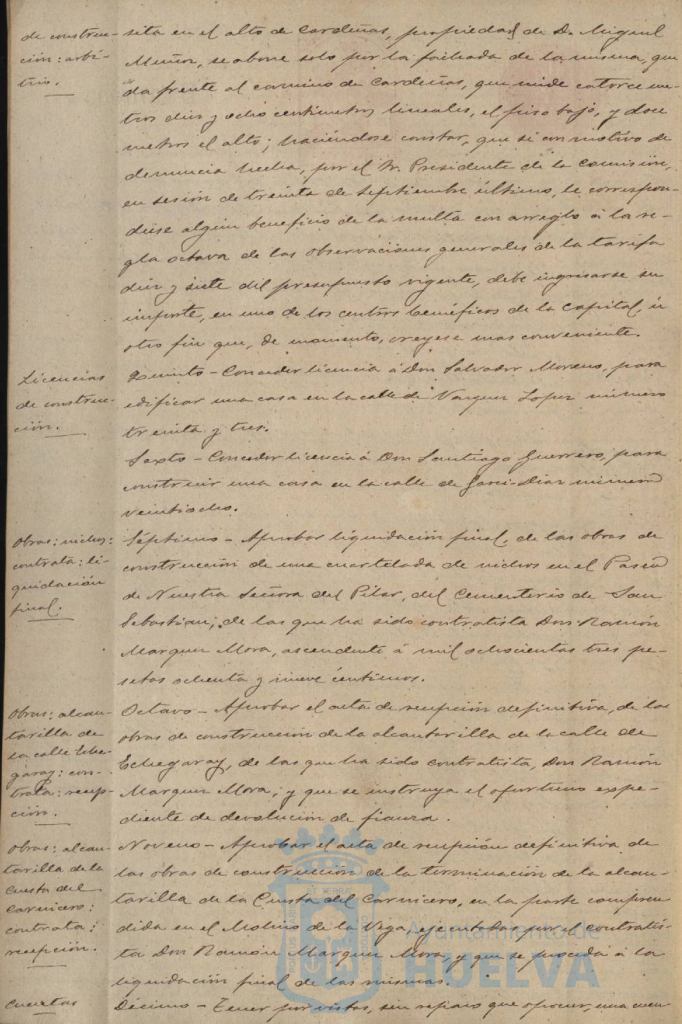 de construc-
ción: arbi-
trio.
sita en el alto de Cardeñas, propiedad de D. Miguel
Muñoz, se abone solo por la fachada de la misma, que
da frente al camino de Cardeñas, que mide catorce me-
tros diez y ocho centímetros lineales, el piso bajo, y doce
metros el alto; haciéndose constar, que si con motivo de
denuncia hecha, por el Sr. Presidente de la Comisión,
en sesión de treinta de Septiembre último, le correspon-
diese algún beneficio de la multa con arreglo á la re-
gla octava de las observaciones generales de la tarifa
diez y siete del presupuesto vigente, debe ingresarse su
importe, en uno de los centros benéficos de la Capital, ú
otro fin que, de momento, creyese mas conveniente.
Licencias
de construc-
ción.
Quinto - Conceder licencia á Don Salvador Moreno, para
edificar una casa en la calle de Vazquez Lopez número
treinta y tres.
Sexto - Conceder licencia á Don Santiago Guerrero, para
construir una casa en la calle de Garci-Diaz número
veintiocho.
Obras: nichos:
contrata: li-
quidación
final.
Séptimo - Aprobar liquidación final, de las obras de
construcción de una cuartelada de nichos en el Paseo
de Nuestra Señora del Pilar, del Cementerio de San
Sebastian, de las que ha sido contratista Don Ramón
Marquez Mora, ascendente á mil ochocientas tres pe-
setas ochenta y nueve céntimos.
Obras: alcan-
tarilla de
la calle Eche-
garay: con-
trata: recep-
ción.
Octavo - Aprobar el acta de recepción definitiva, de las
obras de construcción de la alcantarilla de la calle de
Echegaray, de las que ha sido contratista, Don Ramón
Marquez Mora; y que se instruya el oportuno expe-
diente de devolución de fianza.
Obras: alcan-
tarilla de la
Cuesta del
Carnicero:
contrata:
recepción.
Noveno - Aprobar el acta de recepción definitiva de
las obras de construcción de la terminación de la alcan-
tarilla de la Cuesta del Carnicero, en la parte compren-
dida en el Molino de la Vega, ejecutadas por el contratis-
ta Don Ramón Marquez Mora, y que se proceda á la
liquidación final de las mismas.
Cuentas
Décimo - Tener por vistas, sin reparo que oponer, una cuen-
Ayuntamiento de
HUELVA